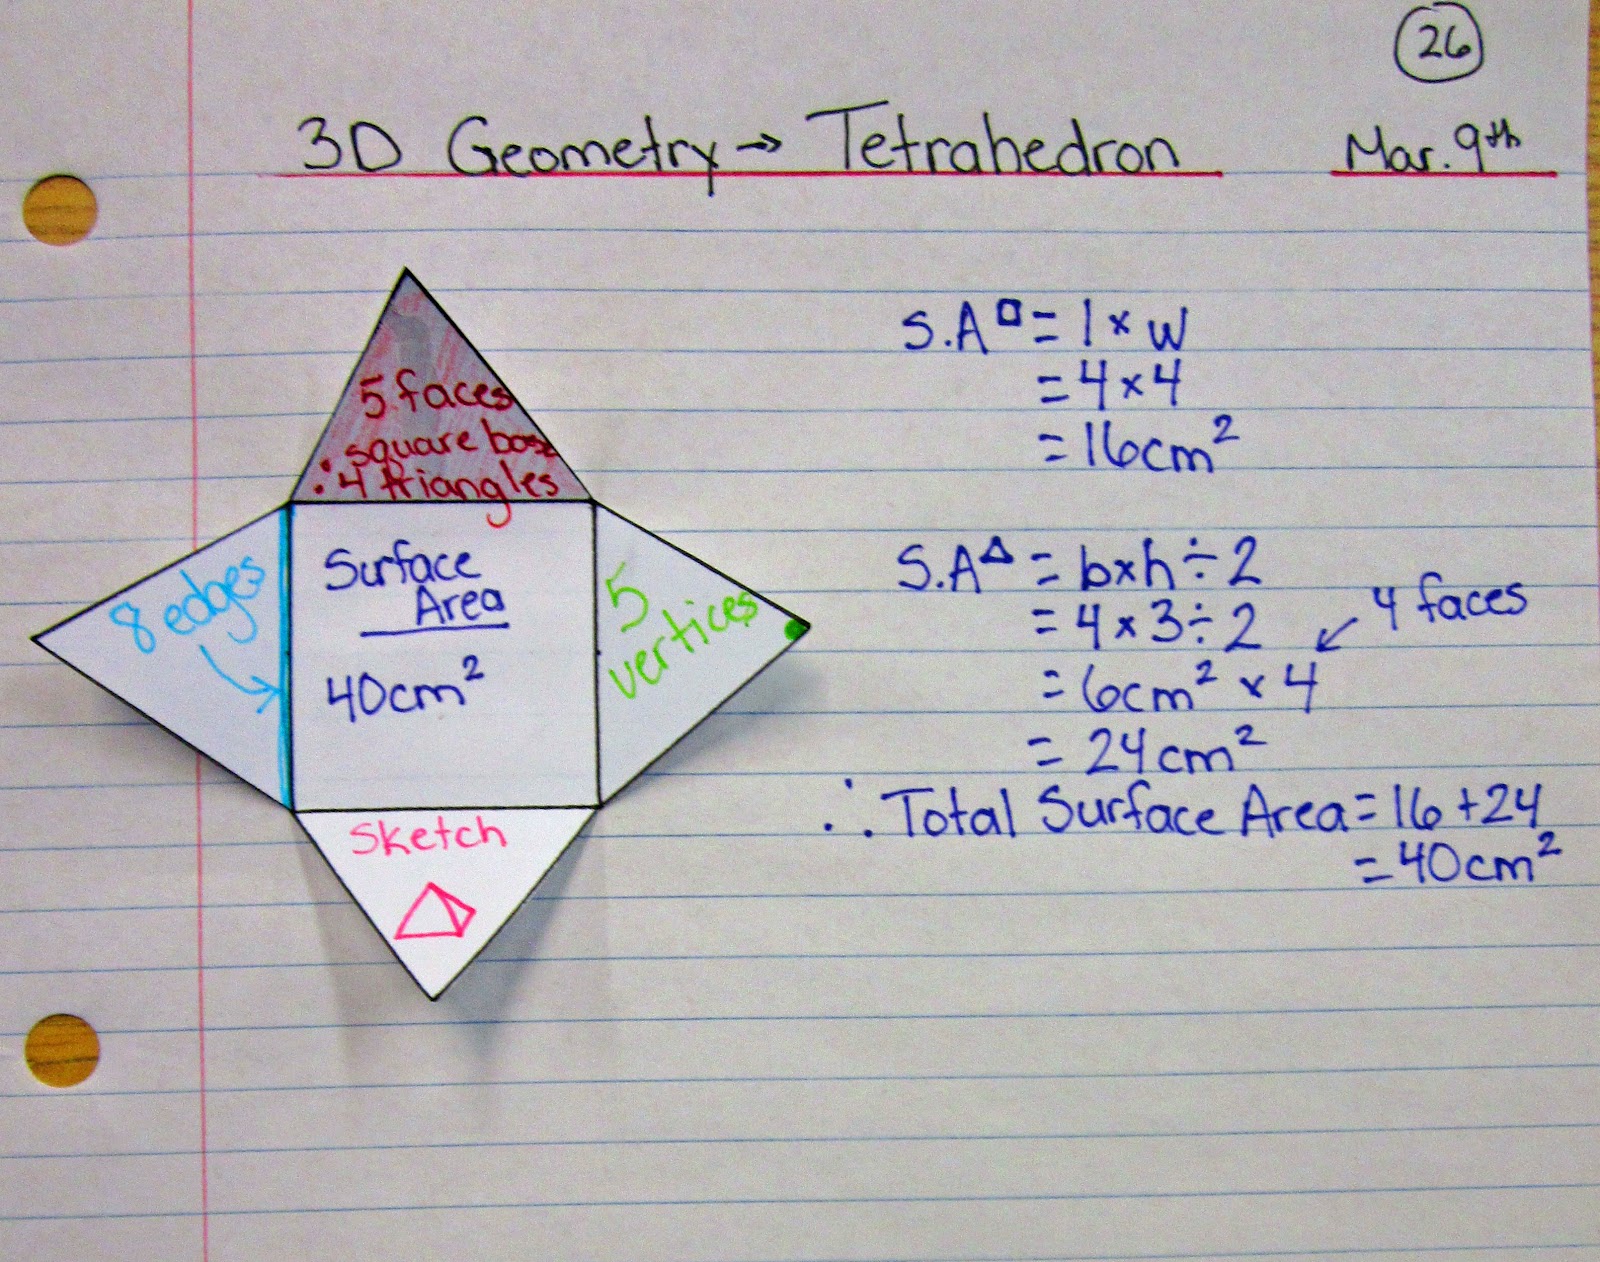 26
3D Geometry → Tetrahedron
Mar. 9th
5 faces
∴ square base
4 triangles
8 edges
Surface
Area
40cm²
5
vertices
Sketch
S.A□ = l × w
= 4 × 4
= 16cm²
S.A△ = b×h ÷ 2
= 4 × 3 ÷ 2
4 faces
= 6cm² × 4
= 24cm²
∴ Total Surface Area = 16 + 24
= 40cm²